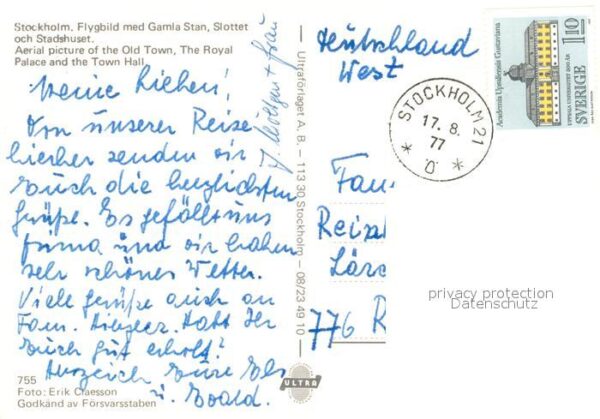 Stockholm. Flygbild med Gamla Stan, Slottet
och Stadshuset.
Aerial picture of the Old Town, The Royal
Palace and the Town Hall.
Meine Lieben!
Von unserer Reise
hierher senden wir
Euch die herzlichsten
Grüße. Es gefällt uns
prima und wir haben
sehr schönes Wetter.
Viele Grüße auch an
Fam. Habt Ihr
Euch gut erholt?
Eure Els
u. Ewald.
+ Frau
755
Foto: Erik Claesson
Godkänd av Försvarsstaben
Ultraförlaget A. B. – 113 30 Stockholm – 08/23 49 10
ULTRA
Deutschland
West
Fam.
776 R
STOCKHOLM 21
17. 8.
77
Academia Upsaliensis Gustaviana
1 10
UPPSALA UNIVERSITET 500 ÅR
SVERIGE
privacy protection
Datenschutz